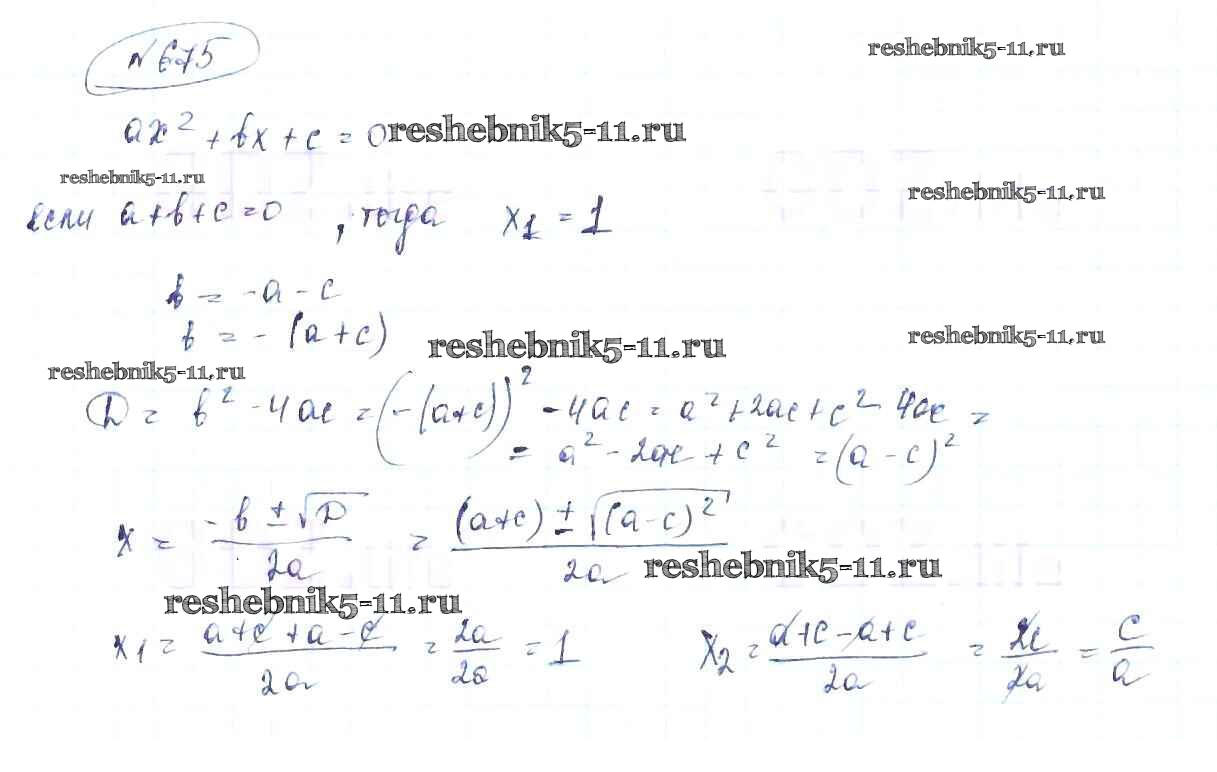 № 675
reshebnik5-11.ru
ax² + bx + c = 0 reshebnik5-11.ru
reshebnik5-11.ru
reshebnik5-11.ru
если a+b+c=0 , тогда x₁ = 1
b = -a - c
b = - (a+c)
reshebnik5-11.ru
reshebnik5-11.ru
reshebnik5-11.ru
D = b² - 4ac = (-(a+c))² - 4ac = a² + 2ac + c² - 4ac =
= a² - 2ac + c² = (a - c)²
x = (-b ± √D)/(2a) = ((a+c) ± √((a-c)²))/(2a)
reshebnik5-11.ru
reshebnik5-11.ru
x₁ = (a+c+a-c)/(2a) = 2a/2a = 1 x₂ = (a+c-a+c)/(2a) = 2c/2a = c/a